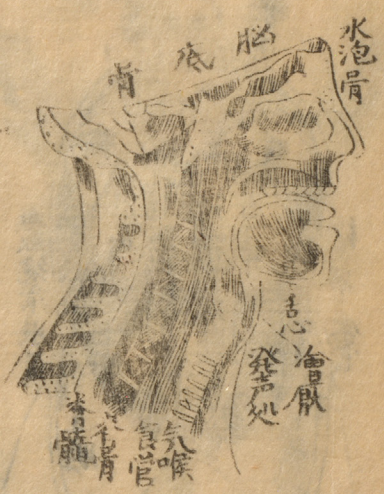 水泡骨
脳底骨
舌心
会厭
発声処
气喉
食管
脊骨
脊髄